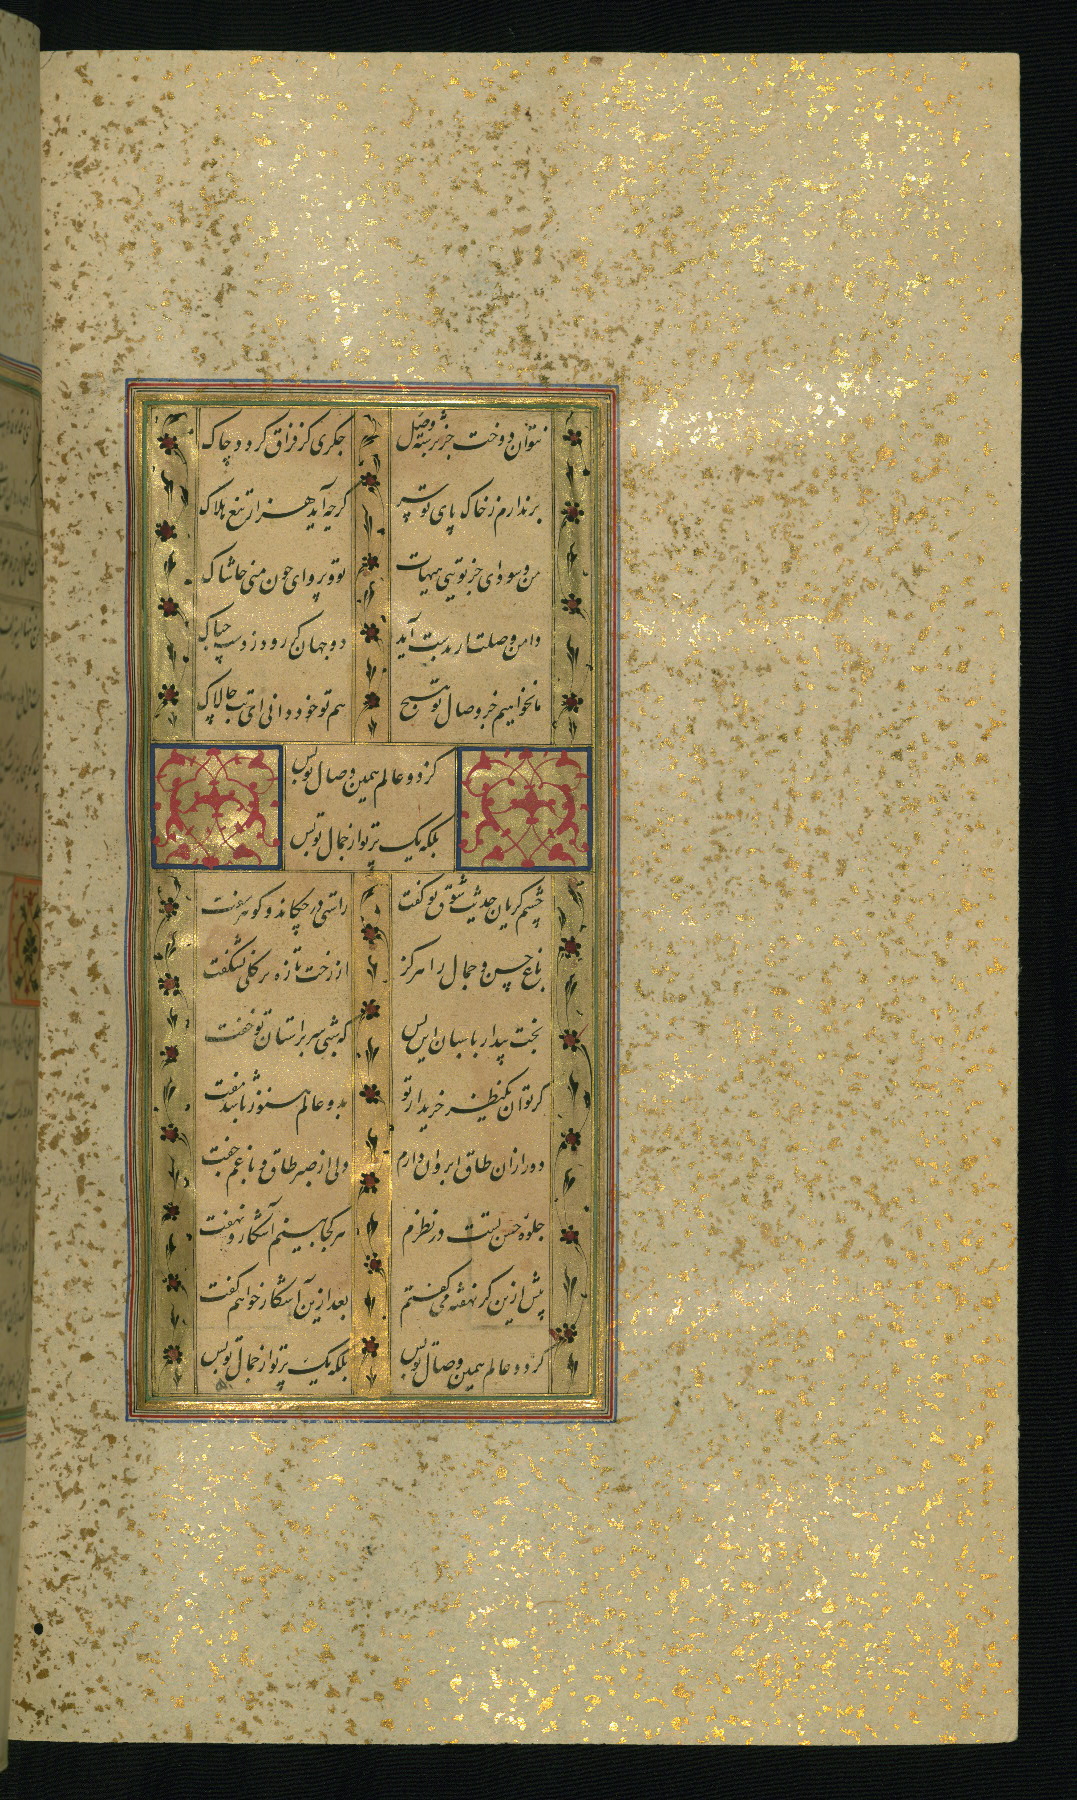 نتوان دوخت جز برشتهٔ وصل جکری کز فراق کردد چاک
برندارم ز خاک پای تو سر کرچه آید هزار تیغ هلاک
من و سودای جز تویی هیهات تو و پروای چون منی حاشاک
دامن وصلت ار بدست آید دو جهان کر رود ز دست چه باک
ما نخواهیم جز وصال تو هیچ هم تو خود دانی ای بت چالاک
کز دو عالم همین وصال تو بس
بلکه یک پرتو از جمال تو بس
چشم کریان حدیث شوق تو کفت راستی در چکاند و کوهر سفت
باغ حسن و جمال را هرکز از رخت تازه تر کلی نشکفت
بخت بیدار پاسبان این بس که شبی سر بر آستان تو خفت
کر توان یک نظر خرید از تو بدو عالم هنوز باشد مفت
دور از آن طاق ابروان دارم دلی از صبر طاق و با غم جفت
جلوه حسن تست در نظرم هر کجا بینم آشکار و نهفت
پیش ازین کر نهفته می کفتم بعد ازین آشکار خواهم کفت
کز دو عالم همین وصال تو بس بلکه یک پرتو از جمال تو بس